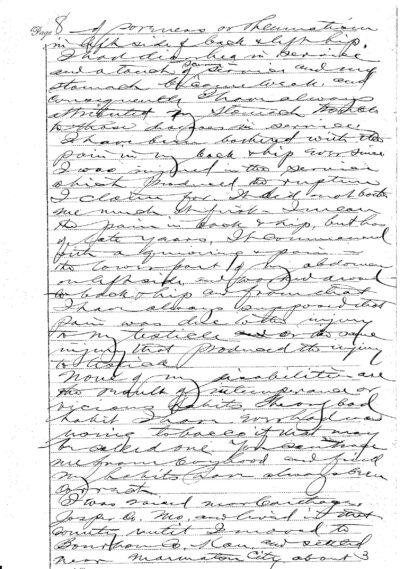 Page 8 of soreness or rheumatism
in left side of back & left hip.
I had diarrhea in service
and a touch of scurvy in service and my
stomach became weak and
consequently I have always
attributed my stomach trouble
to those diseases in service.
I have been bothered with the
pain in my back & hip ever since
I was injured in the service
which produced the rupture
I claim for. It did not bother
me much at first - I mean
the pain in back & hip, but has
of late years. It commenced
with a gnawing & pain in
the lower part of my abdomen
on left side and around
to back & hip and from that
I have always supposed that
pain was due to the injury
to my testicle or to the same
injury that produced the injury
to testicle
None of my disabilities are
the result of intemperance or
vicious habits. The only bad
habit I have ever had was
using tobacco if that may
be called one. You can trace
me from boyhood and find
my habits have always been
correct.
I was raised near Carthage,
Jasper Co. Mo. and lived in that
county until I moved to
Bourbon Co. Kan. and settled
near Marmaton City about 3